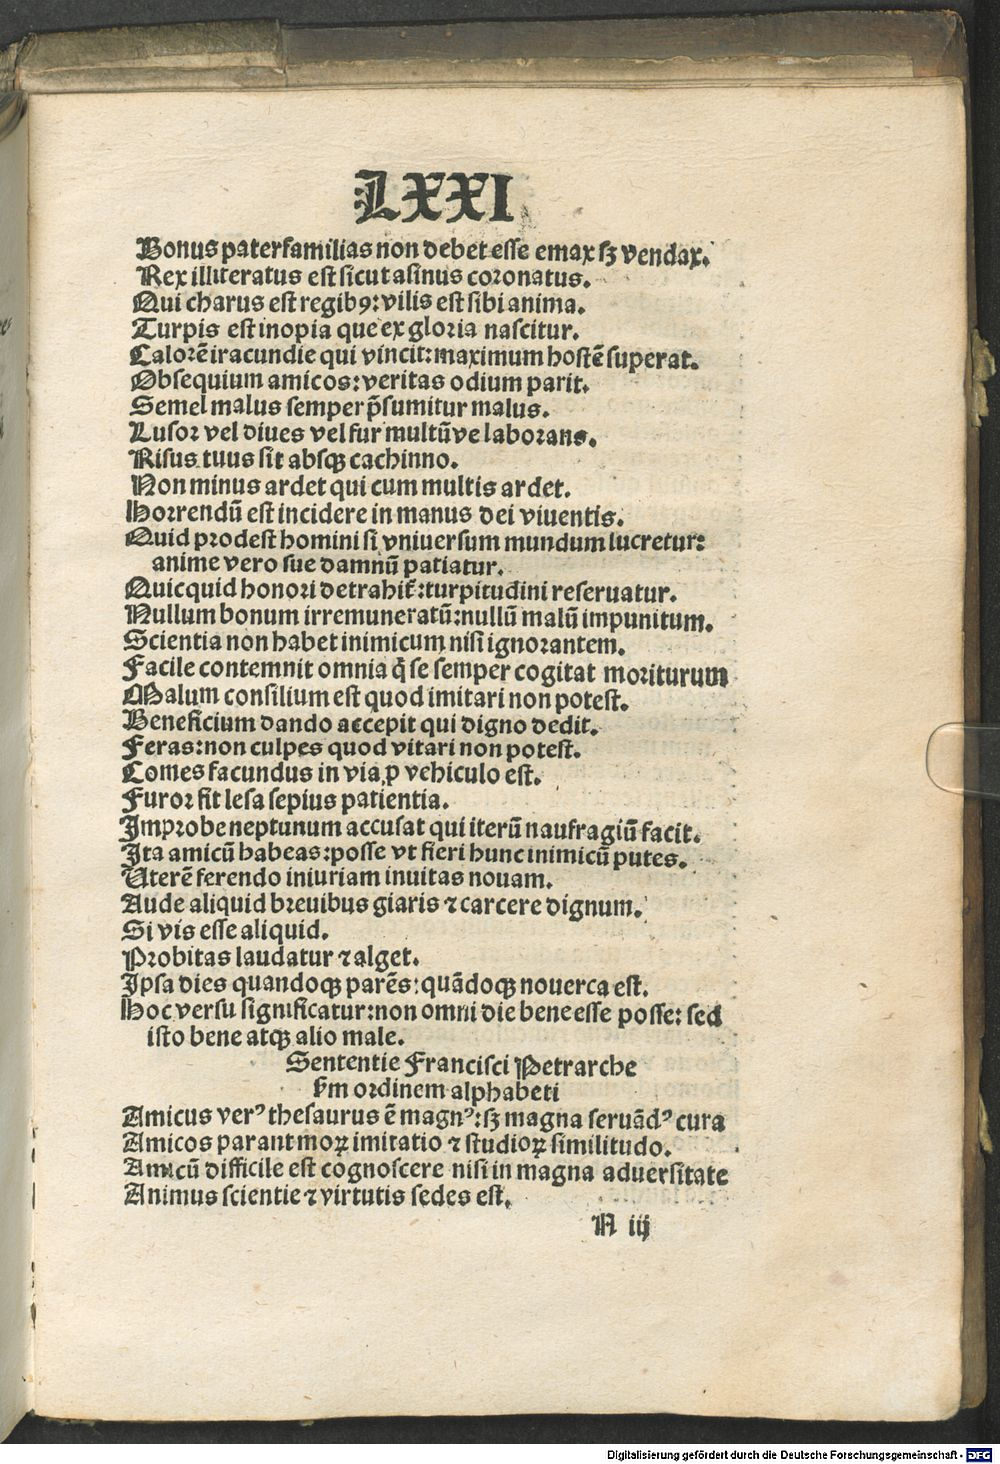 LXXI
Bonus paterfamilias non debet esse emax sꝫ vendax.
Rex illiteratus est sicut asinus coronatus.
Qui charus est regibꝰ: vilis est sibi anima.
Turpis est inopia que ex gloria nascitur.
Calorē iracundie qui vincit: maximum hostē superat.
Obsequium amicos: veritas odium parit.
Semel malus semper p̄sumitur malus.
Lusor vel diues vel fur multūve laborans.
Risus tuus sit absqꝫ cachinno.
Non minus ardet qui cum multis ardet.
Horrendū est incidere in manus dei viuentis.
Quid prodest homini si vniuersum mundum lucretur:
anime vero sue damnū patiatur.
Quicquid honori detrahit᷑: turpitudini reseruatur.
Nullum bonum irremuneratū: nullū malū impunitum.
Scientia non habet inimicum nisi ignorantem.
Facile contemnit omnia q̄ se semper cogitat moriturum
Malum consilium est quod imitari non potest.
Beneficium dando accepit qui digno dedit.
Feras: non culpes quod vitari non potest.
Comes facundus in via ꝓ vehiculo est.
Furor fit lesa sepius patientia.
Improbe neptunum accusat qui iterū naufragiū facit.
Ita amicū habeas: posse vt fieri hunc inimicū putes.
Uterē ferendo iniuriam inuitas nouam.
Aude aliquid breuibus giaris ⁊ carcere dignum.
Si vis esse aliquid.
Probitas laudatur ⁊ alget.
Ipsa dies quandoqꝫ parēs: quādoqꝫ nouerca est.
Hoc versu significatur: non omni die bene esse posse: sed
isto bene atqꝫ alio male.
Sententie Francisci Petrarche
ẜm ordinem alphabeti
Amicus verꝰ thesaurus ē magnꝰ: sꝫ magna seruādꝰ cura
Amicos parant moꝝ imitatio ⁊ studioꝝ similitudo.
Amicū difficile est cognoscere nisi in magna aduersitate
Animus scientie ⁊ virtutis sedes est.
N iij
Digitalisierung gefördert durch die Deutsche Forschungsgemeinschaft - DFG